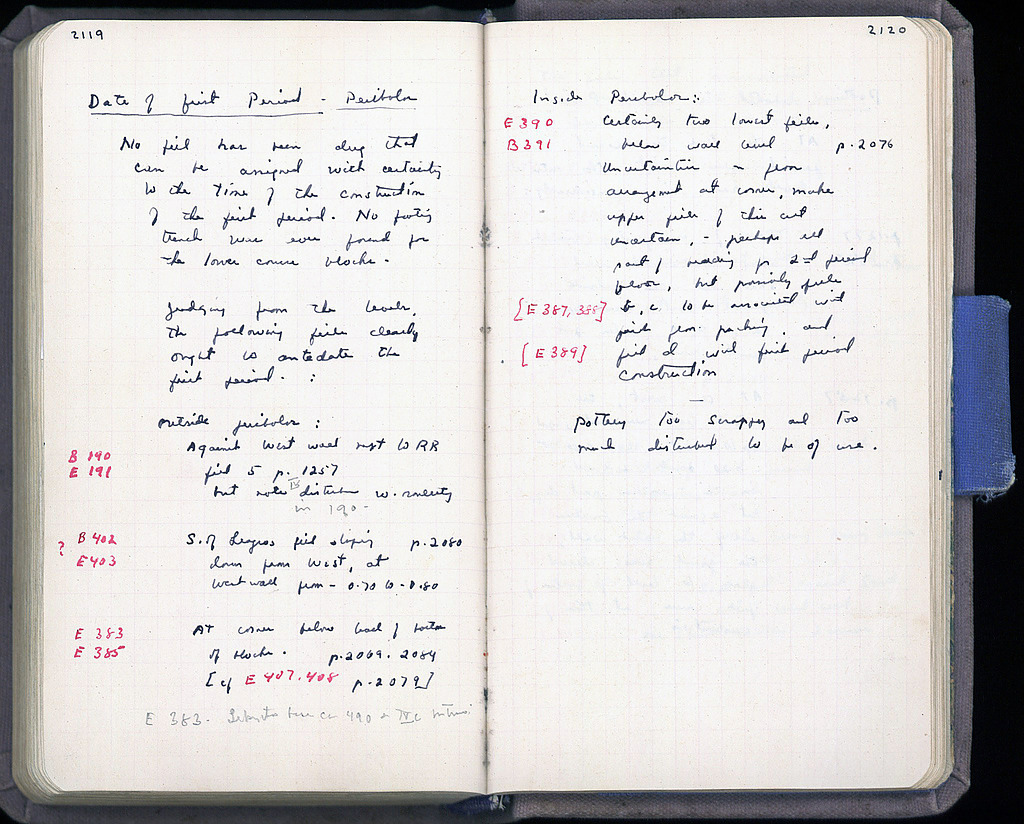 2119
Date of first Period - Peribolos
No fill has been dug that
can be assigned with certainty
to the time of the construction
of the first period. No footing
trench was ever found for
the lower course blocks.
Judging from the levels,
the following fills clearly
ought to antedate the
first period. :
outside peribolos :
Against West wall next to RR
B 190
E 191
fill 5 p. 1257
but note IV disturb
in 190-
B 402
? E 403
S. of fill sloping p.2080
down from West, at
West wall from - 0.70 to - 0.80
E 383
E 385
At corner below level of bottom
of blocks. p.2069. 2084
[cf E 407. 408 p.2079]
E 383. 490 IVc
2120
Inside Peribolos:
E 390
B 391
Certainly two lowest fills,
below wall level p. 2076
Uncertainties - from
arrangement at corner, make
upper fills of this cut
uncertain, - perhaps all
part of for 2nd period
floor, but possibly fills
[E 387, 388] b, c to be associated with
first per. packing, and
[E 389] fill d with first period
construction
Pottery too scrappy and too
much disturbed to be of use.